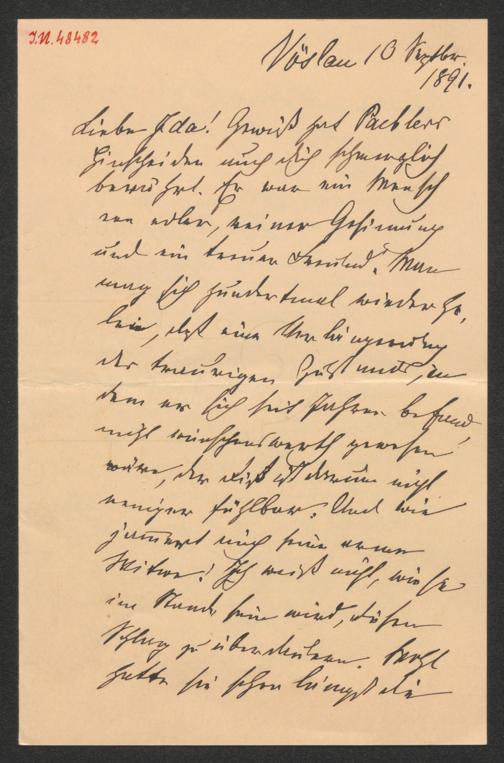 J.N. 48482
Vöslau 10 Septbr.
1891.
Liebe Ida! Gewiß hat Pachlers
Hinscheiden auch dich schmerzlich
berührt. Er war ein Mensch
von edler, reiner Gesinnung
und ein treuer Freund. Man
mag sich hundertmal wiederho-
len, daß eine Verlängerung
des traurigen Zustands, in
dem er sich seit Jahren befand,
nicht wünschenswerth gewesen
wäre, der Riß ist darum nicht
weniger fühlbar. Und wie
jammert mich seine arme
Witwe! Ich weiß nicht, wie sie
im Stande sein wird, diesen
Schlag zu überdauern. Wohl
hatte sie schon längst die